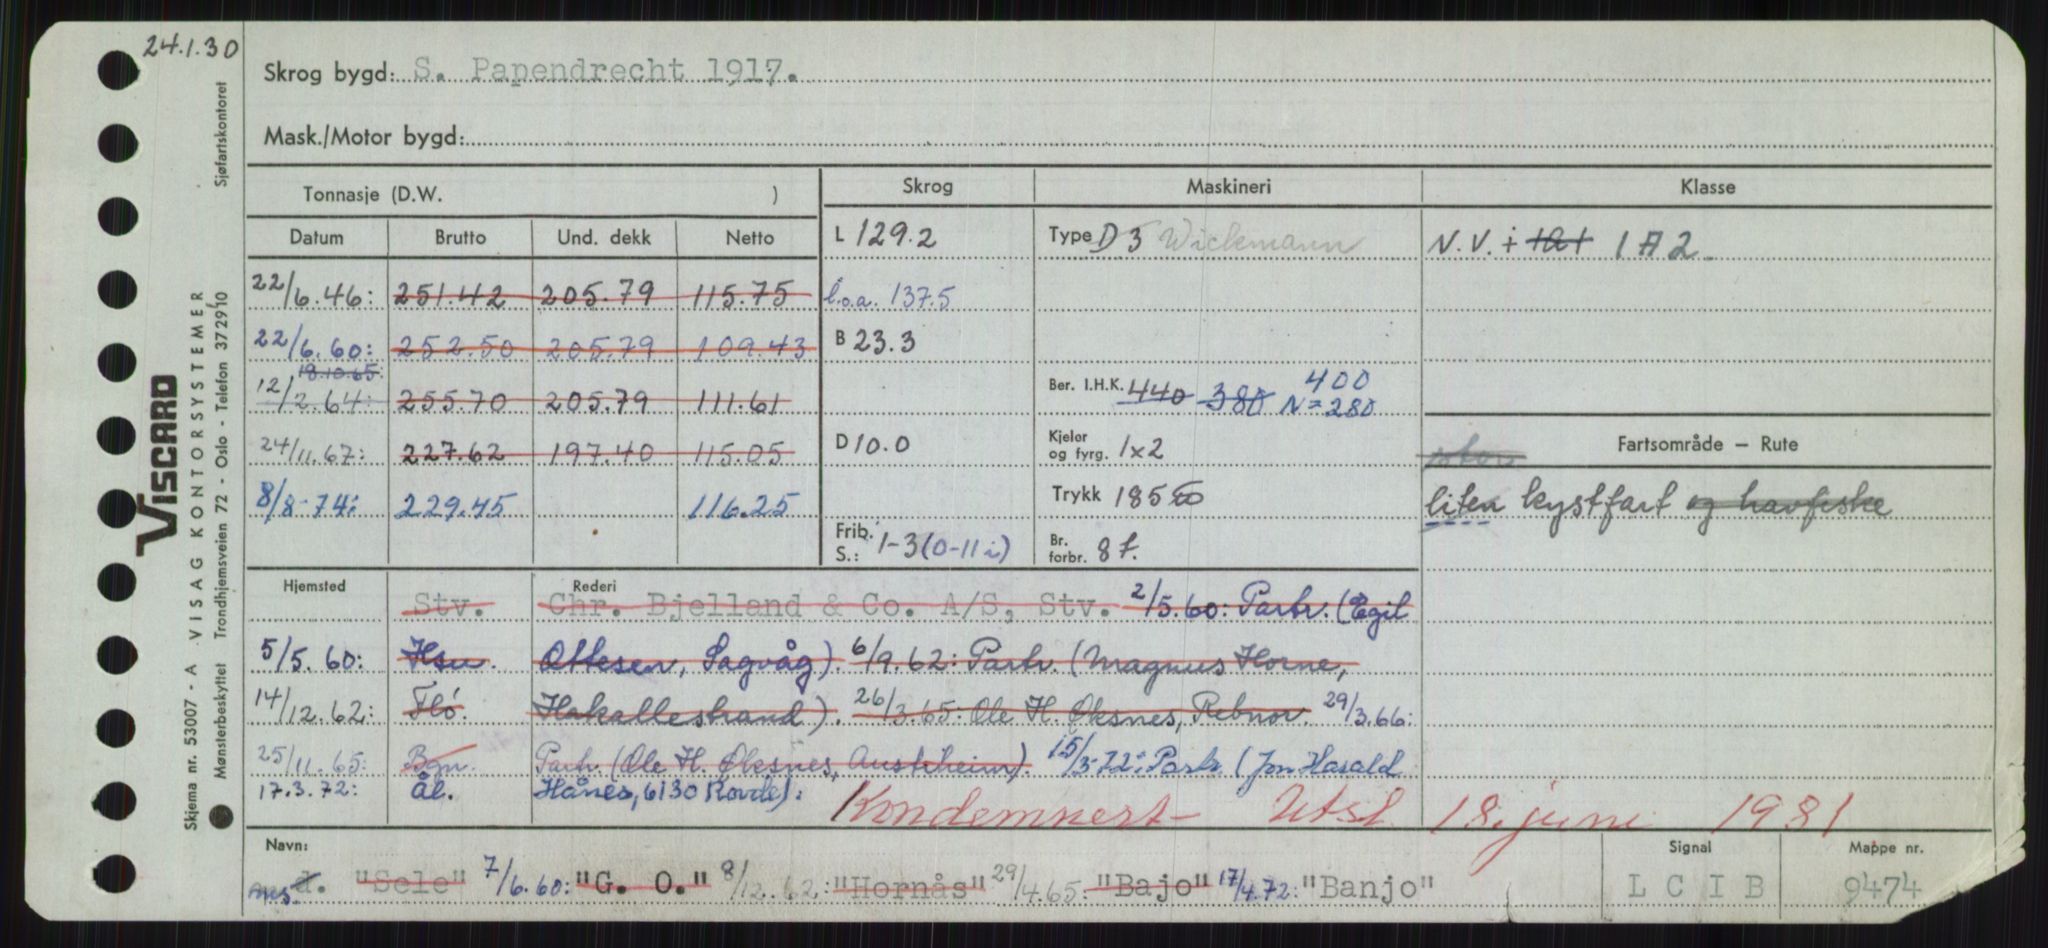 24.1.30
Skrog bygd: S. Papendrecht 1917.
Mask./Motor bygd:
Sjøfartskontoret
VISCARD
VISAG KONTORSYSTEMER
Trondhjemsveien 72 - Oslo - Telefon 372910
Skjema nr. 53007 - A
Mønsterbeskyttet
Tonnasje (D.W. )
Datum Brutto Und. dekk Netto
22/6.46: 251.42 205.79 115.75
22/6.60: 252.50 205.79 109.43
18.10.65
12/2.64: 255.70 205.79 111.61
24/11.67: 227.62 197.40 115.05
8/8-74: 229.45 116.25
Skrog
L 129.2
l.o.a. 137.5
B 23.3
D 10.0
Frib. S.: 1-3 (0-11 i)
Maskineri
Type D 3 Wickmann
400
Ber. I.H.K. 440 380 N=280
Kjeler og fyrg. 1x2
Trykk 185
Br. forbr. 8 t.
Klasse
N.V. + 1A1 1A2
Fartsområde - Rute
stor
liten kystfart og havfiske
Hjemsted Rederi
Stv. Chr. Bjelland & Co. A/S, Stv. 2/5.60: Partr. (Egil
5/5.60: Hsu. Ottesen, Sagvåg). 6/9.62: Partr. (Magnus Horne,
14/12.62: Flö. Hakallestrand). 26/3.65: Ole H. Øksnes, Rebnor. 29/3.66:
25/11.65: Bgn. Partr. (Ole H. Øksnes, Austrheim). 15/3-72: Partr. (Jon Harald
17.3.72: ål. Hånes, 6130 Rovde):
Kondemnert - Utsl. 18. juni 1981
Navn:
ms. d. "Sele" 7/6.60: "G. O." 8/12.62: "Hornås" 29/4.65: "Bajo" 17/4.72: "Banjo"
Signal
L C I B
Mappe nr.
9474